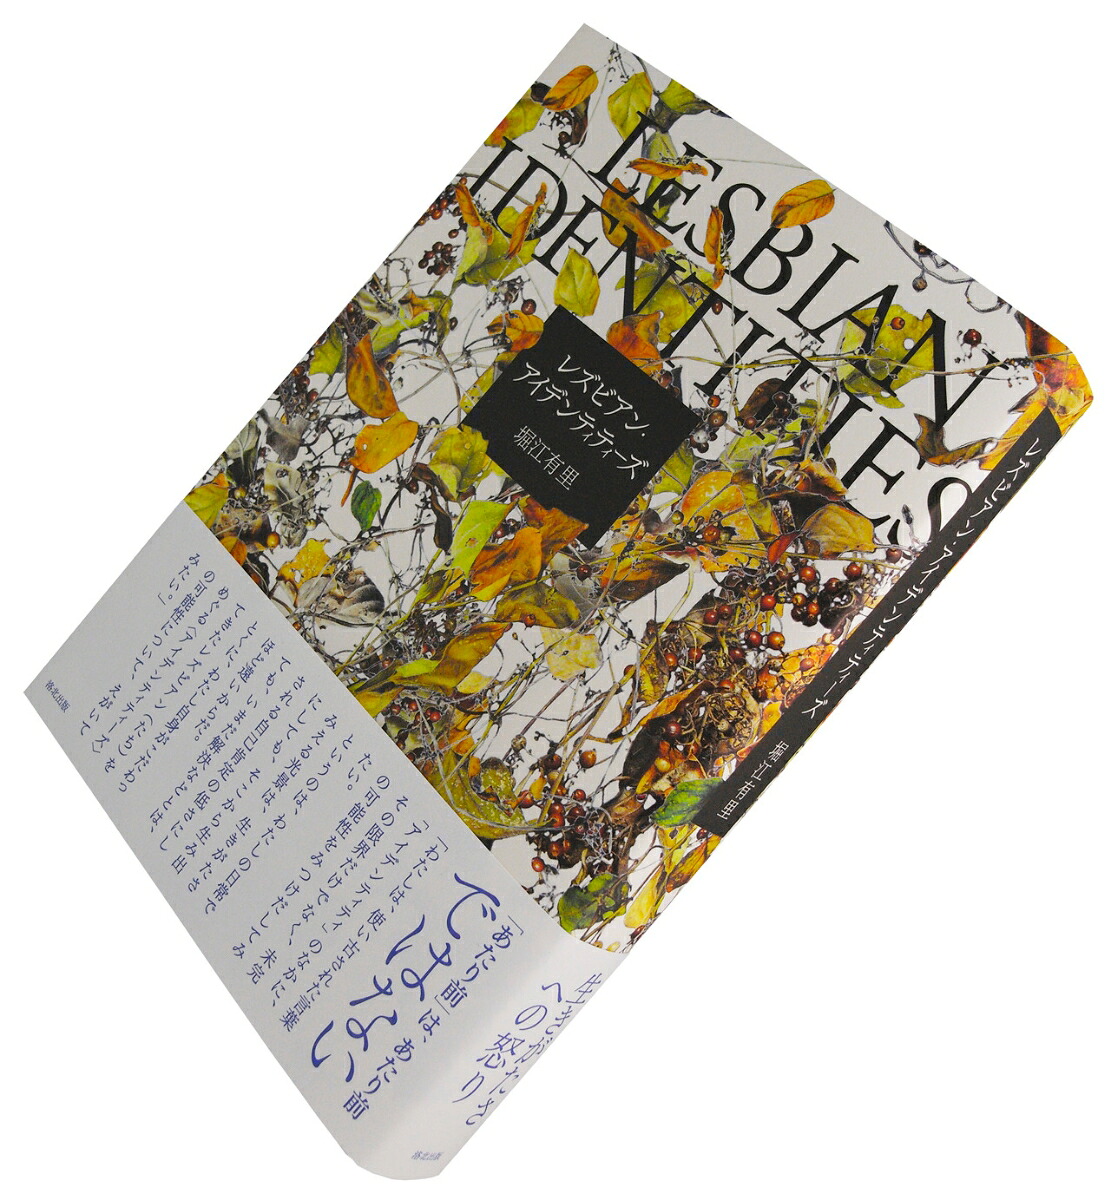 LESBIAN
IDENTITIES
レズビアン・
アイデンティティーズ
堀江有里
レズビアン・アイデンティティーズ
堀江有里
生きがたさ
への怒り
洛北出版
「あたり前」は、あたり前
ではない
「わたしは、使い古された言葉
「アイデンティティ」のなかに、
その限界だけでなく、未完
の可能性をみつけだしてみ
たい。
というのは、わたしの日常で
みえる光景は、生きがたさに
しても、そこから生み出
される自己肯定の低さにし
ても、いまだ解決などとは、
ほど遠いからだ。
とくに、わたし自身がこだわっ
てきたレズビアン(たち)を
めぐる〈アイデンティティーズ〉
の可能性について、えがいて
みたい」。
洛北出版